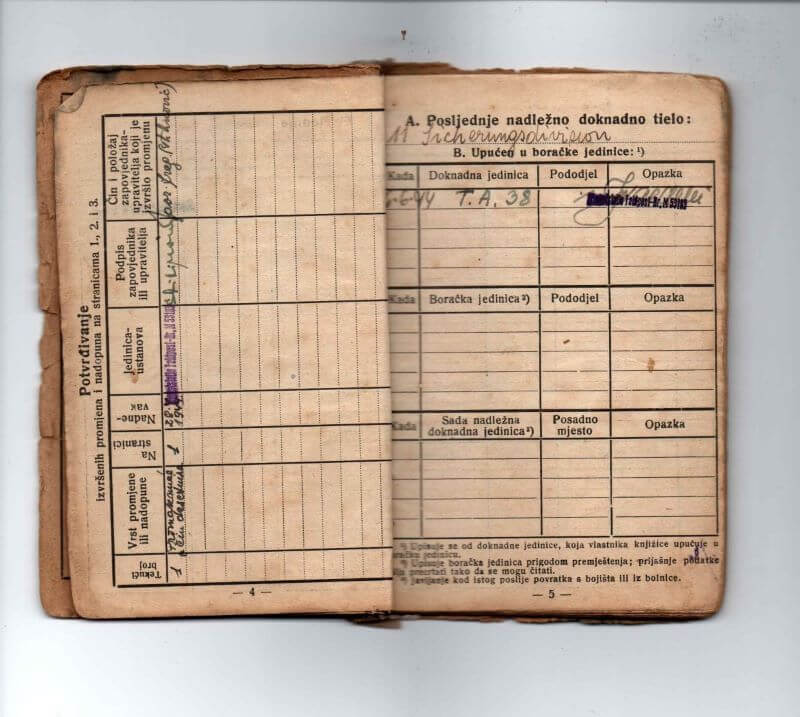 Potvrđivanje
izvršenih promjena i nadopuna na stranicama 1., 2. i 3.
Tekući
broj
Vrst promjene
ili nadopune
Na
stranici
Nadne-
vak
Jedinica-
ustanova
Podpis
zapovjednika
ili upravitelja
Čin i položaj
zapovjednika-
upravitelja koji je
izvršio promjenu
1
1
28.
— 4 —
A. Posljednje nadležno doknadno tielo:
11 Sicherungsdivision
B. Upućen u boračke jedinice:¹)
Kada Doknadna jedinica Pododjel Opazka
6.44 T. A. 38
Feldpost-Nr.
Kada Boračka jedinica²) Pododjel Opazka
Kada Sada nadležna
doknadna jedinica³) Posadno
mjesto Opazka
¹) Upisuje se od doknadne jedinice, koja vlastnika knjižice upućuje u
jedinicu.
²) Upisuje boračka jedinica prigodom premještenja; prijašnje podatke
precrtati tako da se mogu čitati.
³) javljanje kod istog poslije povratka s bojišta ili iz bolnice.
— 5 —